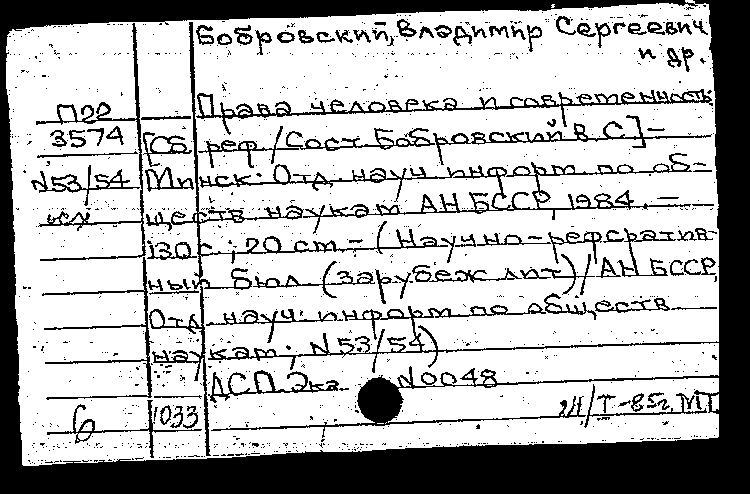 Бобровский, Владимир Сергеевич
и др.
Права человека и современность
П00
3574
[Сб. реф./Сост. Бобровский В.С.] –
N53/54
Минск: Отд. науч. информ. по об-
ществ. наукам АН БССР, 1984. –
130 с.; 20 см – (Научно-рефератив-
ный бюл. (зарубеж. лит.)/АН БССР,
Отд. науч. информ. по обществ.
наукам; N53/54)
ДСП. Экз. N0048
6 1033 /I-85г. МТ